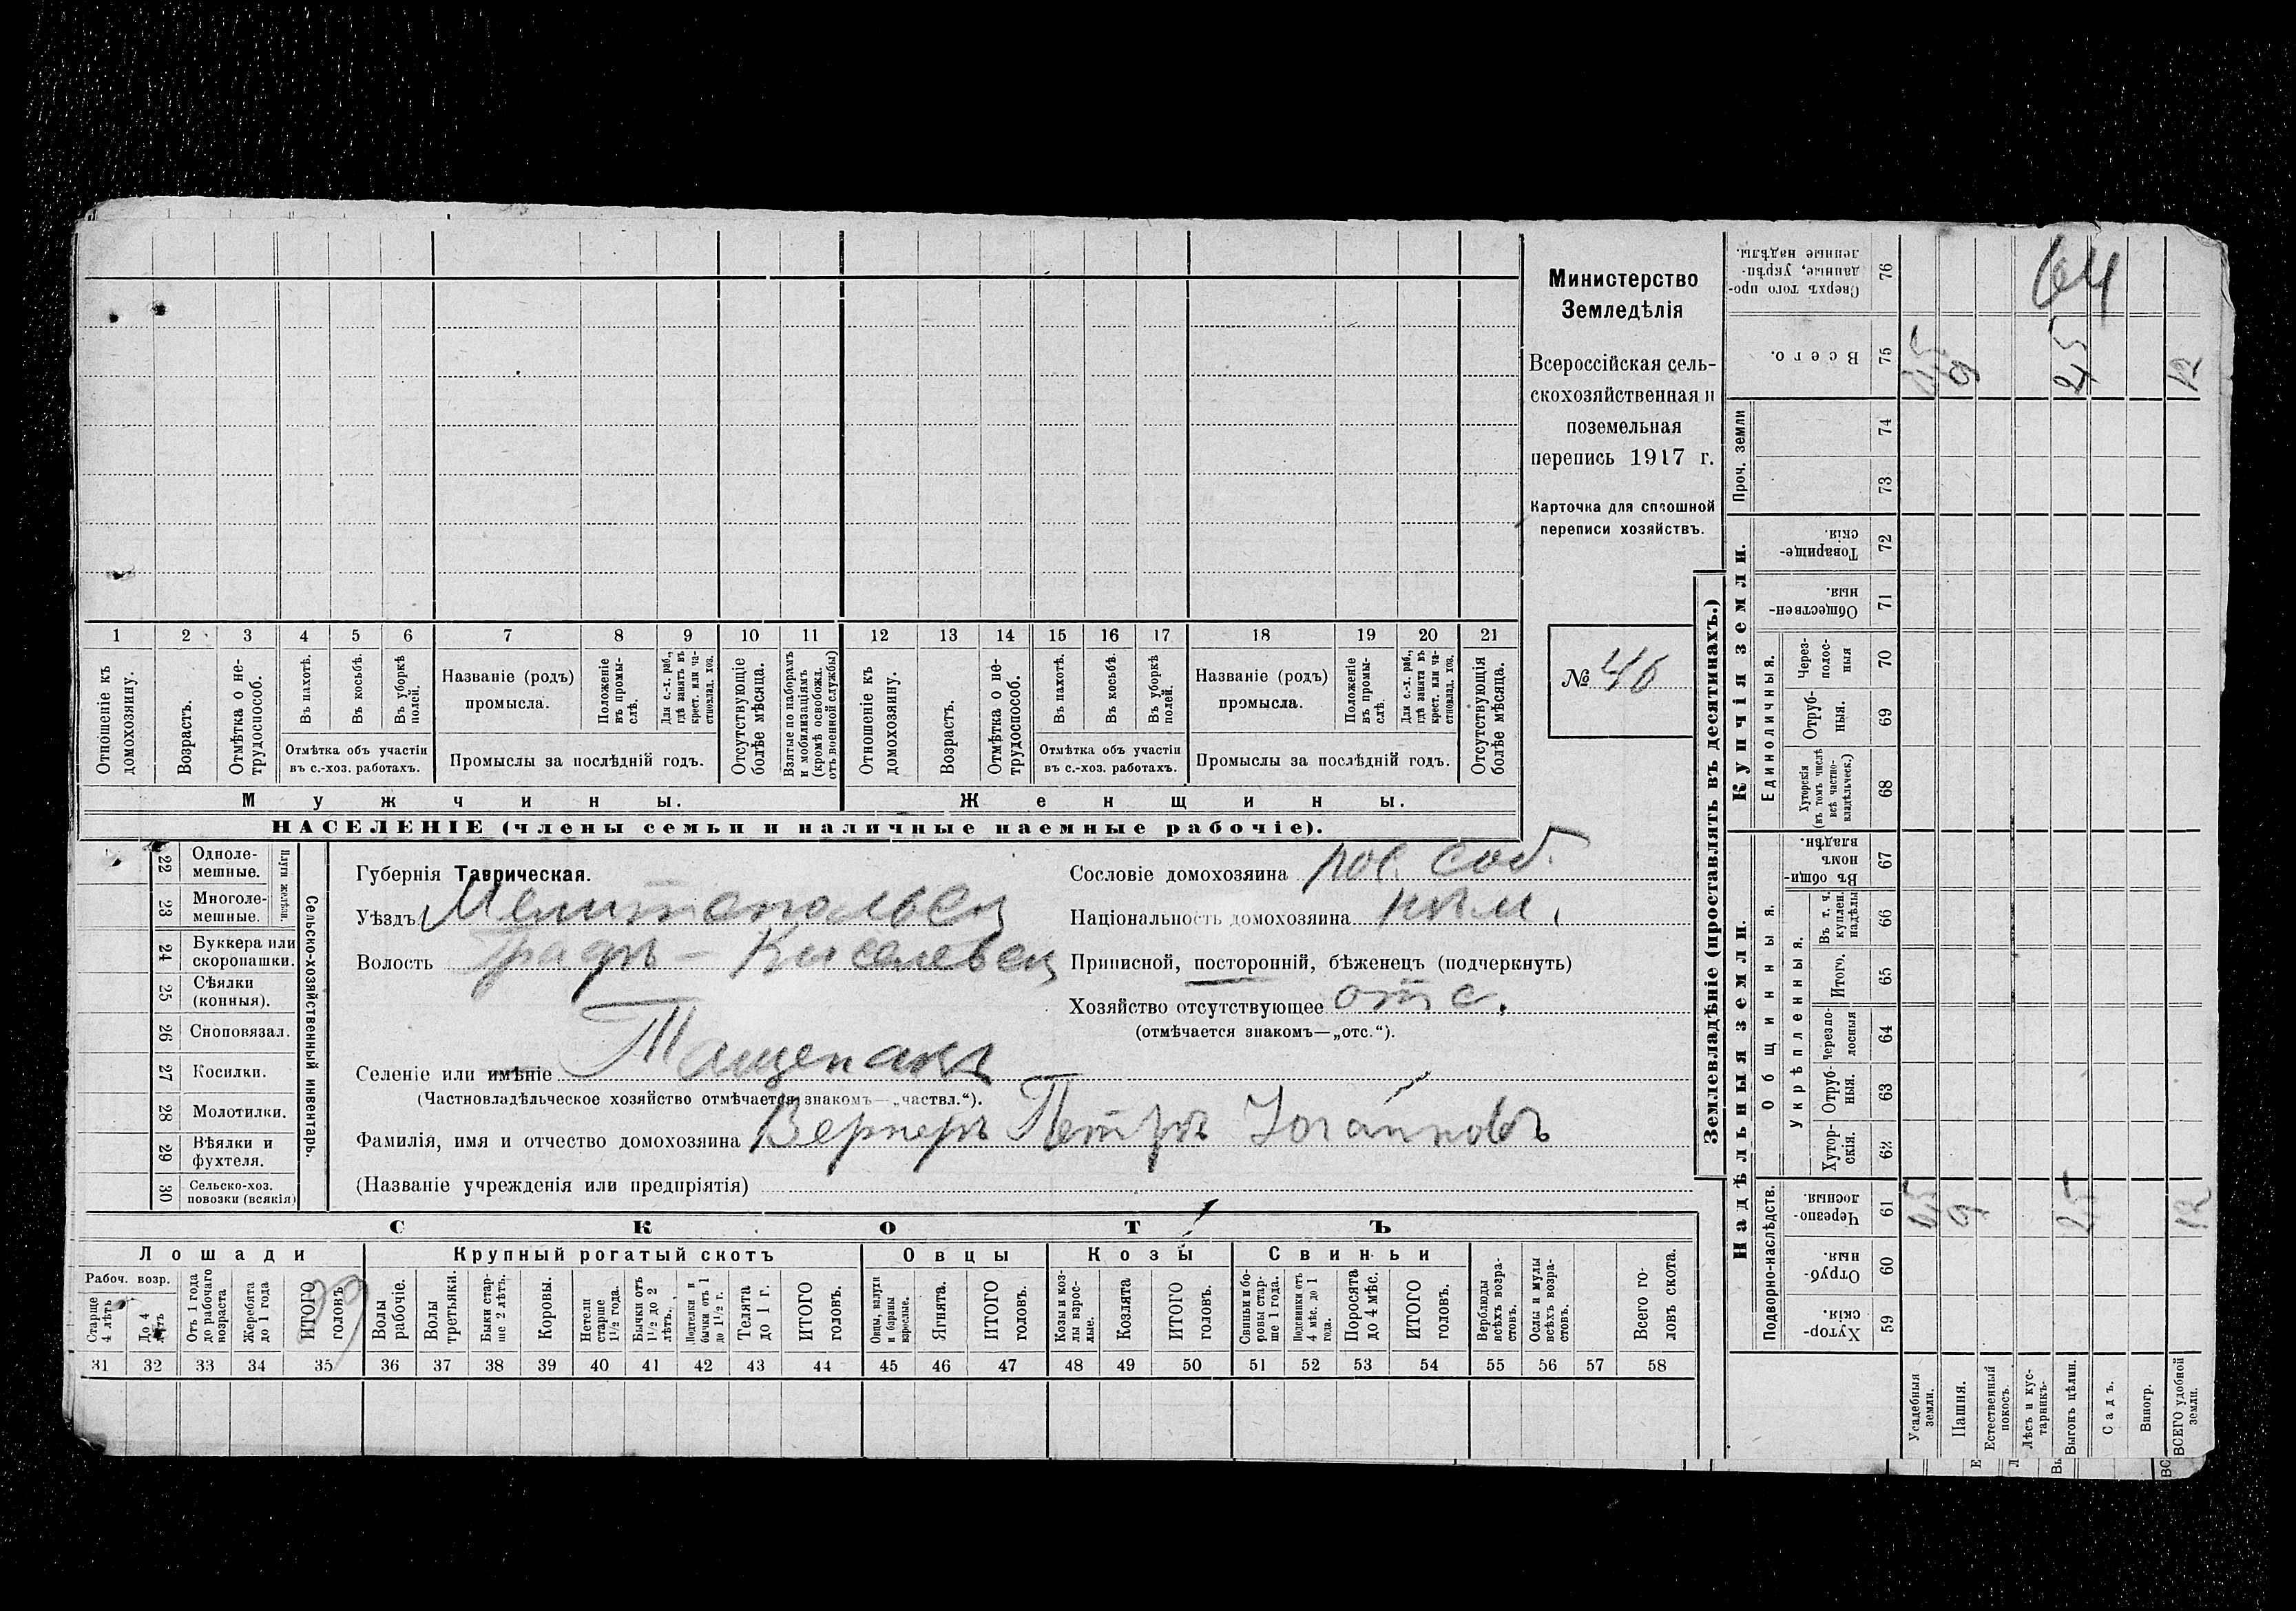 Министерство
Земледѣлія
Всероссійская сель-
скохозяйственная и
поземельная
перепись 1917 г.
Карточка для сплошной
переписи хозяйствъ.
№ 46
1 2 3 4 5 6 7 8 9 10 11 12 13 14 15 16 17 18 19 20 21
Отношеніе къ домохозяину.
Возрастъ.
Отмѣтка о не-трудоспособ.
Въ пахотѣ.
Въ косьбѣ.
Въ уборкѣ полей.
Отмѣтка объ участіи
въ с.-хоз. работахъ.
Названіе (родъ)
промысла.
Положеніе въ промы-слѣ.
Для с.-х. раб., гдѣ занятъ въ крест. или ча-стновлад. хоз.
Промыслы за послѣдній годъ.
Отсутствующіе болѣе мѣсяца.
Взятые по наборамъ и мобилизаціямъ (кромѣ освобожд. отъ военной службы)
Отношеніе къ домохозяину.
Возрастъ.
Отмѣтка о не-трудоспособ.
Въ пахотѣ.
Въ косьбѣ.
Въ уборкѣ полей.
Отмѣтка объ участіи
въ с.-хоз. работахъ.
Названіе (родъ)
промысла.
Положеніе въ промы-слѣ.
Для с.-х. раб., гдѣ занята въ крест. или ча-стновлад. хоз.
Промыслы за послѣдній годъ.
Отсутствующія болѣе мѣсяца.
Мужчины.
Женщины.
НАСЕЛЕНІЕ (члены семьи и наличные наемные рабочіе).
22 Одноле-
мешные.
23 Многоле-
мешные.
Плуги желѣзн.
24 Буккера или
скоропашки.
25 Сѣялки
(конныя).
26 Сноповязал.
27 Косилки.
28 Молотилки.
29 Вѣялки и
фухтеля.
30 Сельско-хоз.
повозки (всякія)
Сельско-хозяйственный инвентарь.
Губернія Таврическая.
Уѣздъ Мелитопольск
Волость Графъ-Киселевск
Селеніе или имѣніе Тащенакъ
(Частновладѣльческое хозяйство отмѣчается знакомъ—„частвл.“).
Фамилія, имя и отчество домохозяина Вернеръ Петръ Іогановъ
(Названіе учрежденія или предпріятія)
Сословіе домохозяина пос. соб.
Національность домохозяина нѣм.
Приписной, посторонній, бѣженецъ (подчеркнуть)
Хозяйство отсутствующее отс.
(отмѣчается знакомъ—„отс.“).
СКОТЪ
Лошади
Рабоч. возр.
Старше 4 лѣтъ
До 4 лѣтъ
Отъ 1 года до рабочаго возраста
Жеребята до 1 года
ИТОГО головъ.
99
Крупный рогатый скотъ
Волы рабочіе.
Волы третьяки.
Быки стар-ше 2 лѣтъ.
Коровы.
Нетели старше 1½ года.
Бычки отъ 1½ до 2 лѣтъ.
Подтелки и бычки отъ 1 до 1½ г.
Телята до 1 г.
ИТОГО головъ.
Овцы
Овцы, валухи и бараны взрослые.
Ягнята.
ИТОГО головъ.
Козы
Козы и коз-лы взрос-лые.
Козлята
ИТОГО головъ.
Свиньи
Свиньи и бо-ровы стар-ше 1 года.
Подсвинки отъ 4 мѣс. до 1 года.
Поросята до 4 мѣс.
ИТОГО головъ.
Верблюды всѣхъ возра-стовъ.
Ослы и мулы всѣхъ возра-стовъ.
Всего го-ловъ скота.
31 32 33 34 35 36 37 38 39 40 41 42 43 44 45 46 47 48 49 50 51 52 53 54 55 56 57 58
Землевладѣніе (проставлять въ десятинахъ.)
64
Сверхъ того про-данные, укрѣп-ленные надѣлы. 76
Всего. 75
45 9 25 12
Проч. земли
74
73
Купчія земли.
Товарище-скія. 72
Обществен-ныя. 71
Единоличныя.
Через-полос-ныя 70
Отруб-ныя. 69
Хуторскія (въ томъ числѣ всѣ частно-владѣльческ.) 68
Надѣльныя земли.
Общинныя.
Въ общи-номъ владѣн. 67
Укрѣпленныя.
Въ т. ч. куплен. надѣлы 66
Итого. 65
Черезпо-лосныя 64
Отруб-ныя. 63
Хутор-скія. 62
Подворно-наслѣдств.
Черезпо-лосныя. 61
45 9 25 12
Отруб-ныя. 60
Хутор-скія. 59
Усадебныя земли.
Пашня.
Естественный покосъ.
Лѣсъ и кус-тарникъ.
Выгонъ цѣлин.
Садъ.
Виногр.
ВСЕГО удобной земли.